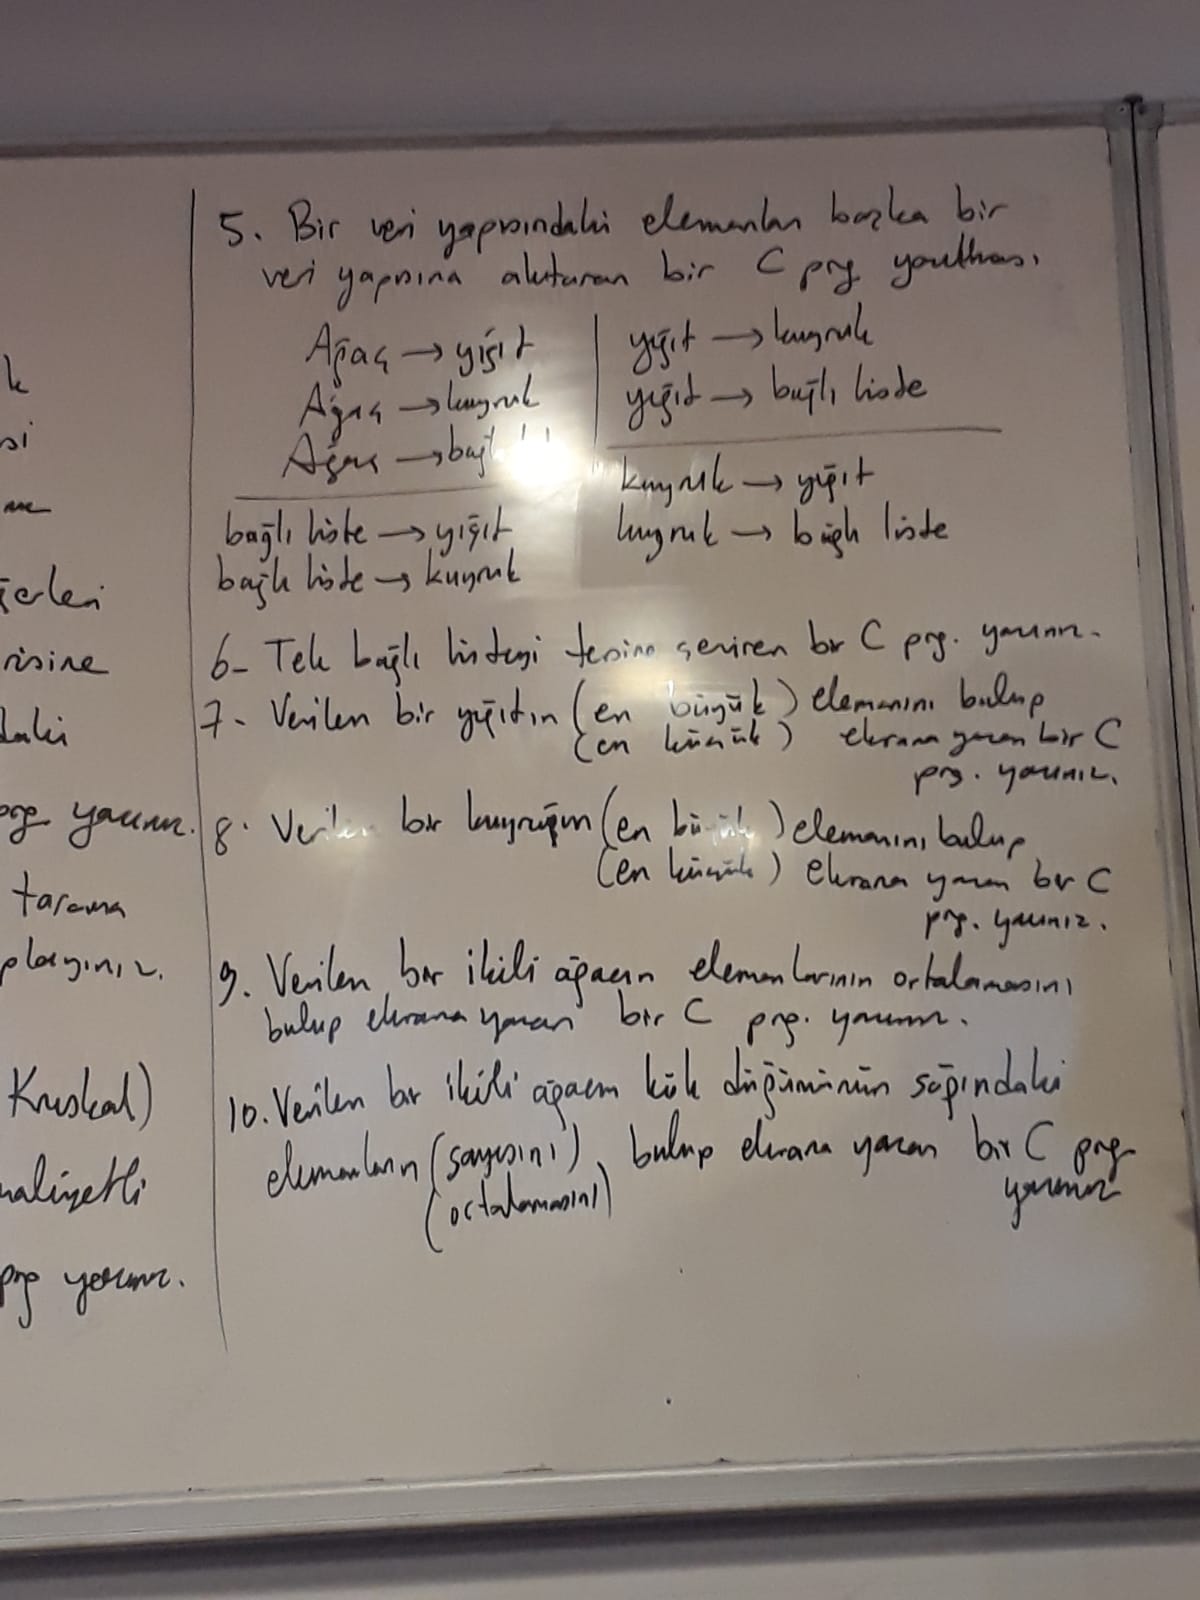 k
si
me
ğerleri
risine
daki
prg yazınız.
tarama
playınız.
Kruskal)
maliyetli
prg yazınız.
5. Bir veri yapısındaki elemanları başka bir
veri yapısına aktaran bir C prg yazılması.
Ağaç → yığıt
Ağaç → kuyruk
Ağaç → bağlı
bağlı liste → yığıt
bağlı liste → kuyruk
yığıt → kuyruk
yığıt → bağlı liste
kuyruk → yığıt
kuyruk → bağlı liste
6- Tek bağlı listeyi tersine çeviren bir C prg. yazınız.
7- Verilen bir yığıtın (en büyük) elemanını bulup
(en küçük) ekrana yazan bir C
prg. yazınız.
8. Verilen bir kuyruğun (en büyük) elemanını bulup
(en küçük) ekrana yazan bir C
prg. yazınız.
9. Verilen bir ikili ağacın elemanlarının ortalamasını
bulup ekrana yazan bir C prg. yazınız.
10. Verilen bir ikili ağacın kök düğümünün sağındaki
elemanların (sayısını) bulup ekrana yazan bir C prg
(ortalamasını) yazınız